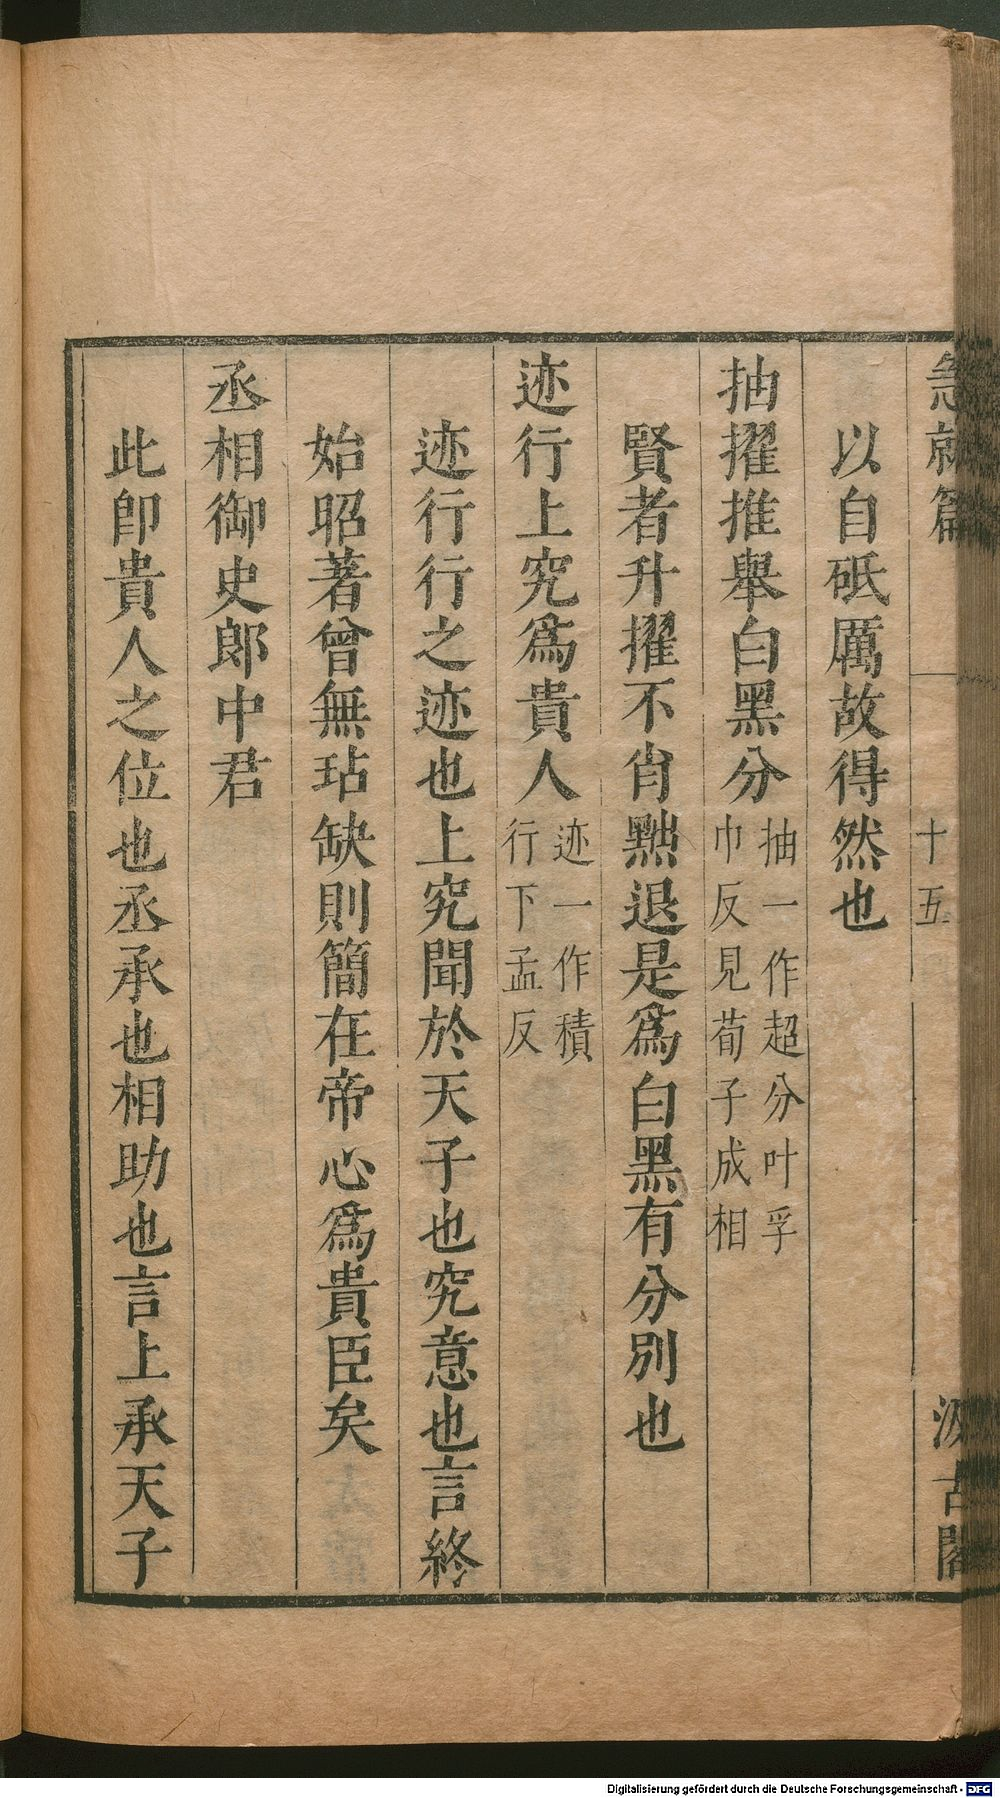 急就篇 十五 汲古閣
以自砥厲故得然也
抽擢推舉白黑分 抽一作超分叶孚
巾反見荀子成相
賢者升擢不肖黜退是爲白黑有分別也
迹行上究爲貴人 迹一作積
行下孟反
迹行行之迹也上究聞於天子也究意也言終
始昭著曾無玷缺則簡在帝心爲貴臣矣
丞相御史郎中君
此卽貴人之位也丞承也相助也言上承天子
Digitalisierung gefördert durch die Deutsche Forschungsgemeinschaft - DFG